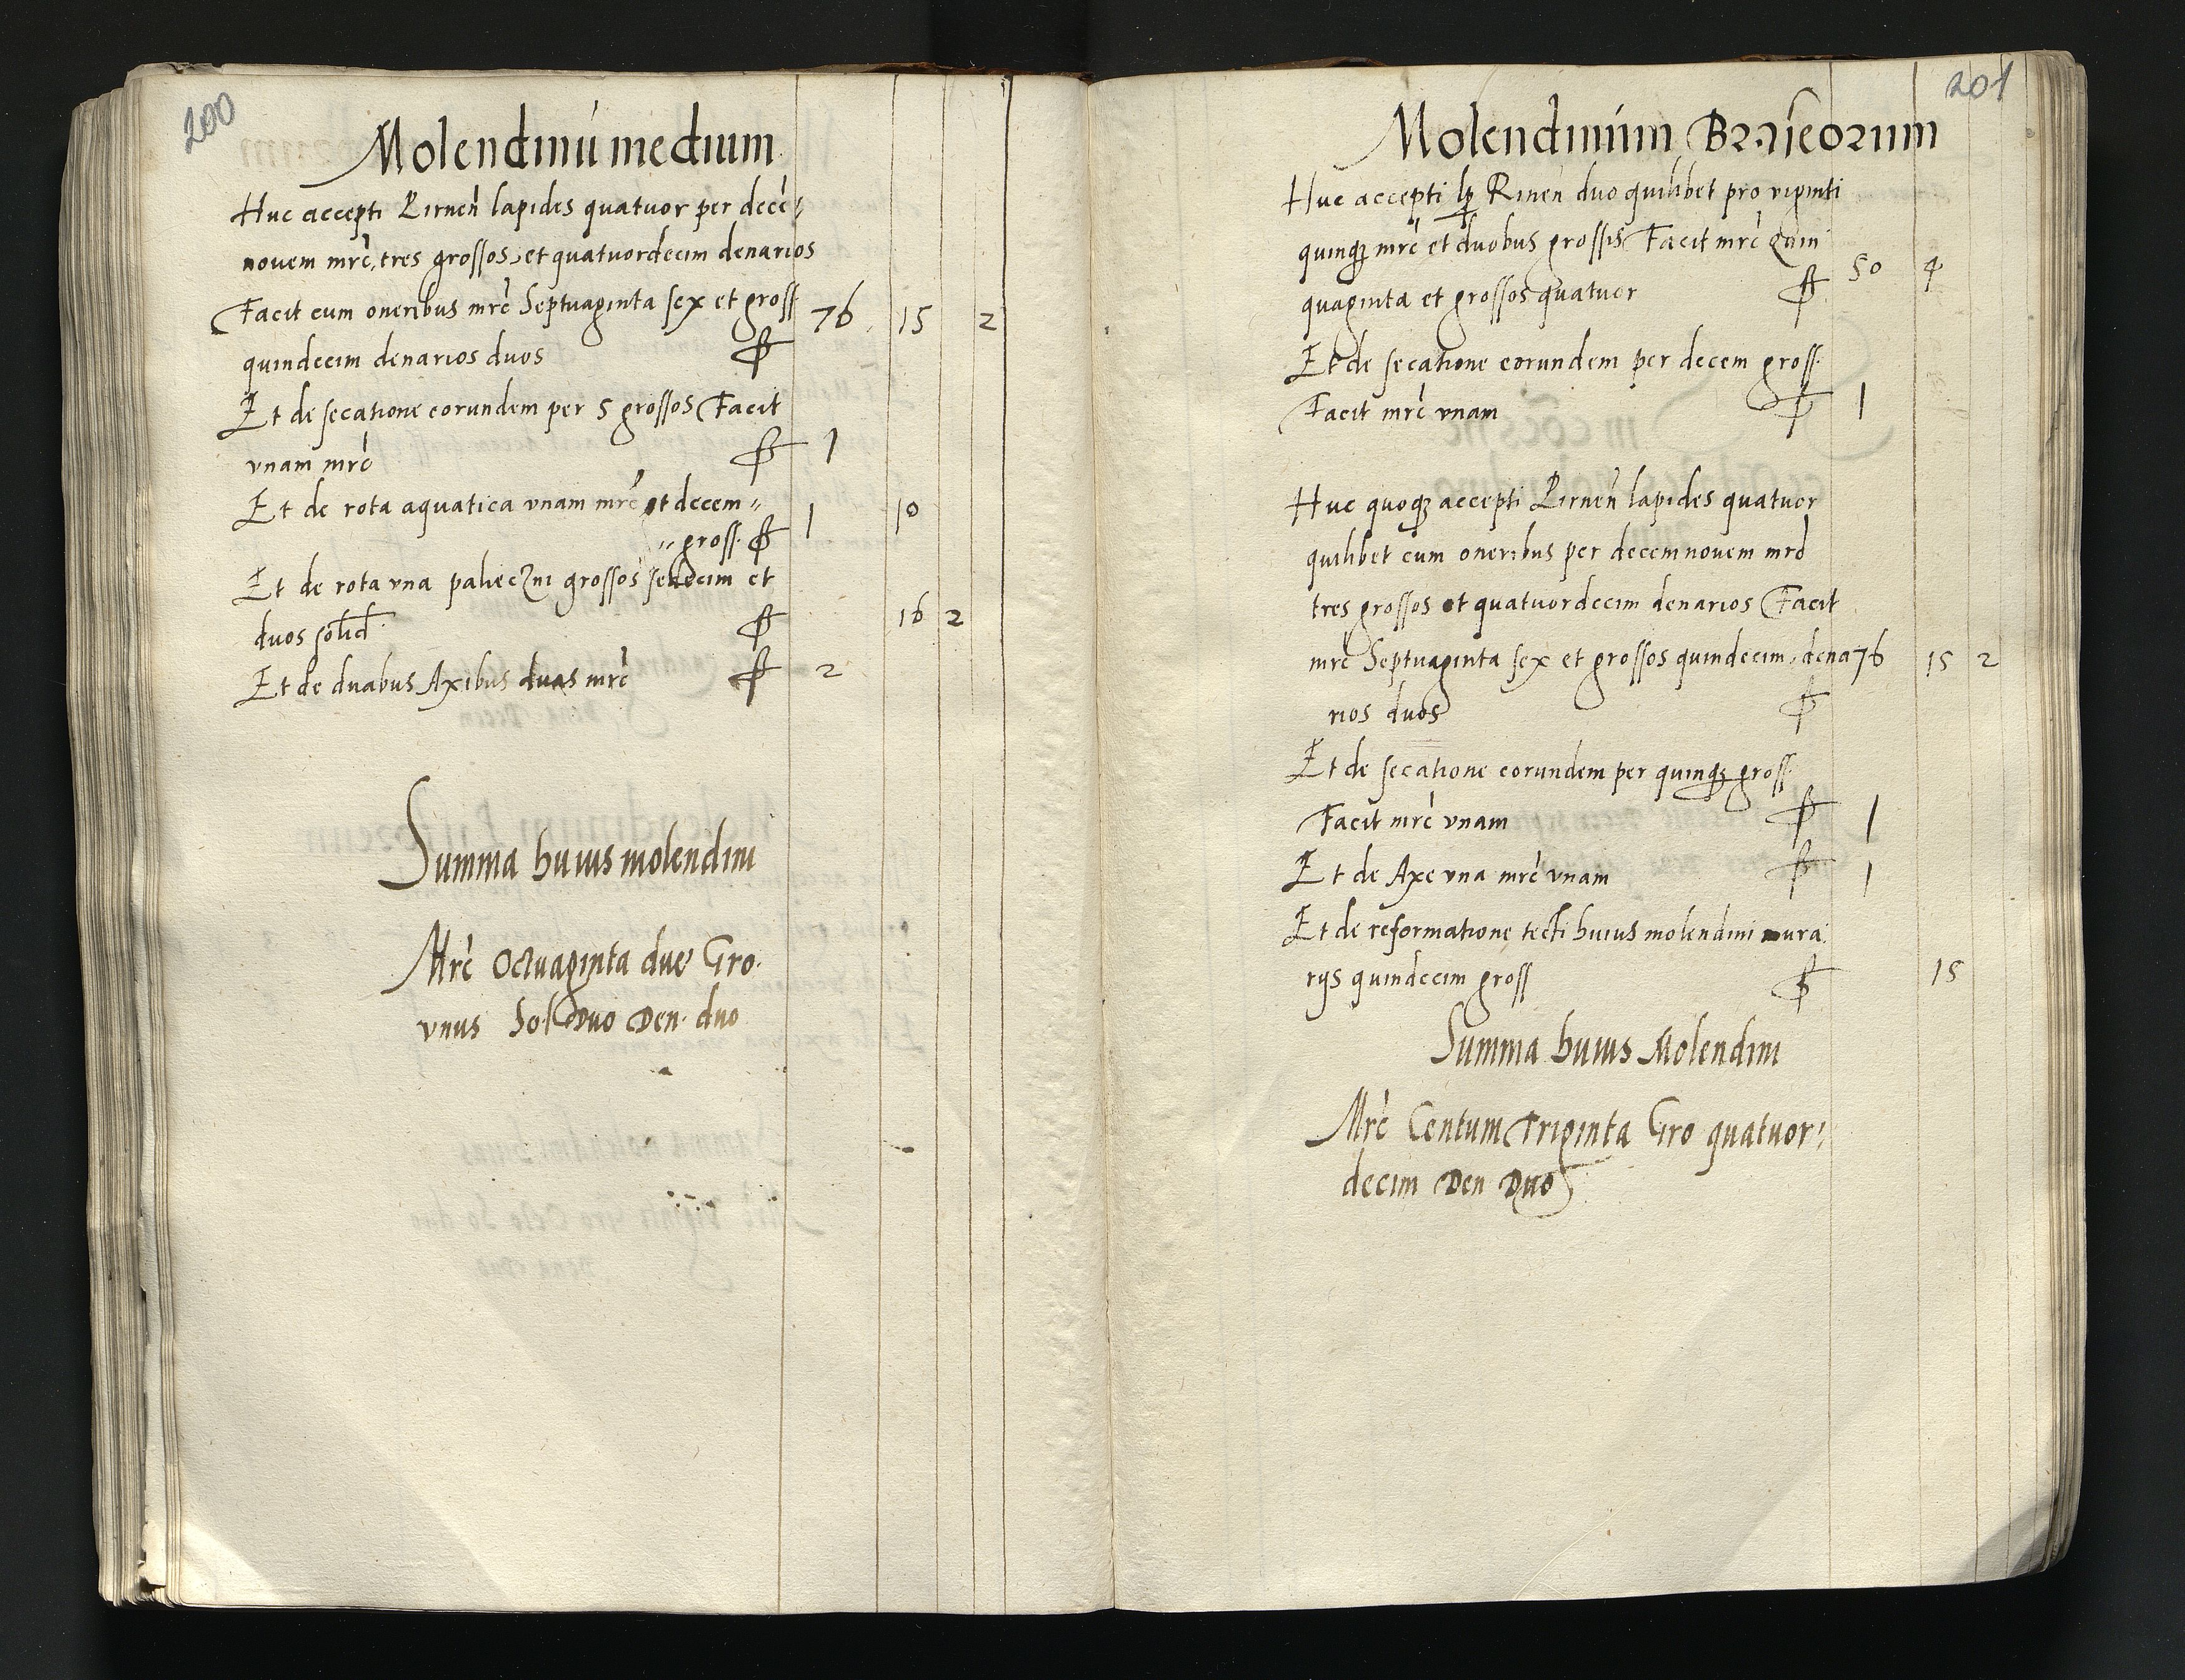 200
Molendinú medium
Huc accepti Pirneń lapides quatuor per decé-
novem mrć, tres grossos, et quatuordecim denarios
Facit cum oneribus mrć Septuaginta sex et gross
quindecim denarios duos 76 15 2
Et de secatione eorundem per 5 grossos Facit
vnam mrć 1
Et de rota aquatica vnam mrć et decem〃
〃gross. 1 10
Et de rota vna palieczni grossos sedecim et
duos solid. 16 2
Et de duabus Axibus duas mrć 2
Summa huius molendini
Mrć Octuaginta due Gro.
vnus Sol Duo Den. duo
201
Molendinúm Braseorum
Huc accepti Rinen duo quilibet pro viginti
quinq3 mrć et duobus grossis Facit mrć quin
quaginta et grossos quatuor 50 4
Et de secatione eorundem per decem gross.
Facit mrć vnam 1
Huc quoq3 accepti Pirneń lapides quatuor
quilibet cum oneribus per decem novem mrć
tres grossos et quatuordecim denarios Facit
mrć Septuaginta sex et grossos quindecim, dena 76 15 2
rios duos
Et de secatione eorundem per quinq3 gross.
Facit mrć vnam 1
Et de Axe vna mrć vnam 1
Et de reformatione tecti huius molendini mura
rijs quindecim gross 15
Summa huius Molendini
Mrć Centum Triginta Gro quatuor-
decim Den Duo